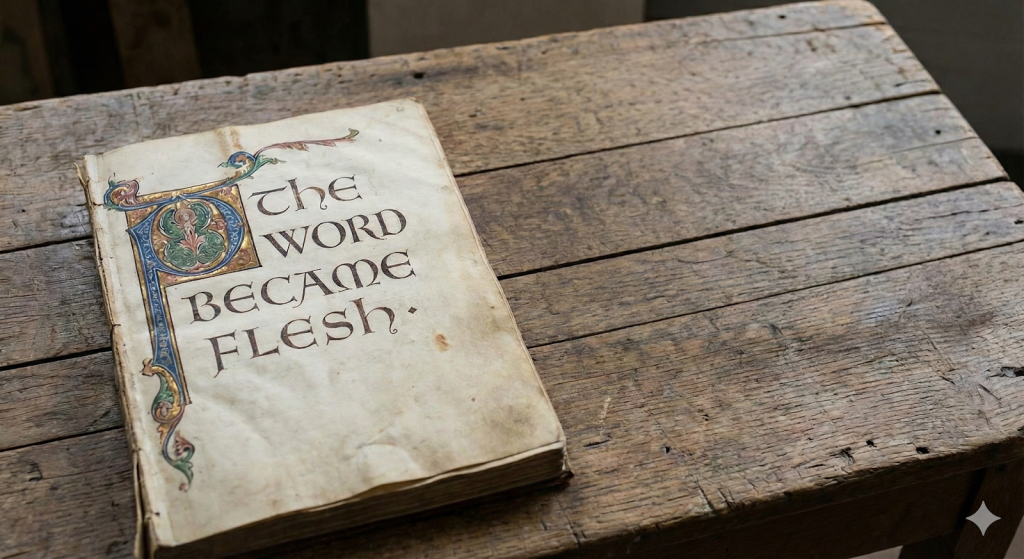 P
THE
WORD
BECAME
FLESH·